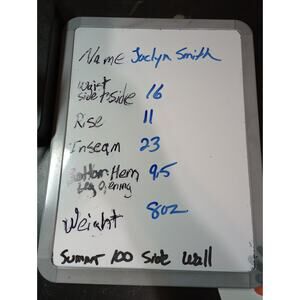 Name Jaclyn Smith
Waist
side to side 16
Rise 11
Inseam 23
Bottom Hem 9.5
Leg Opening
Weight 8oz
Summit 100 Side Wall